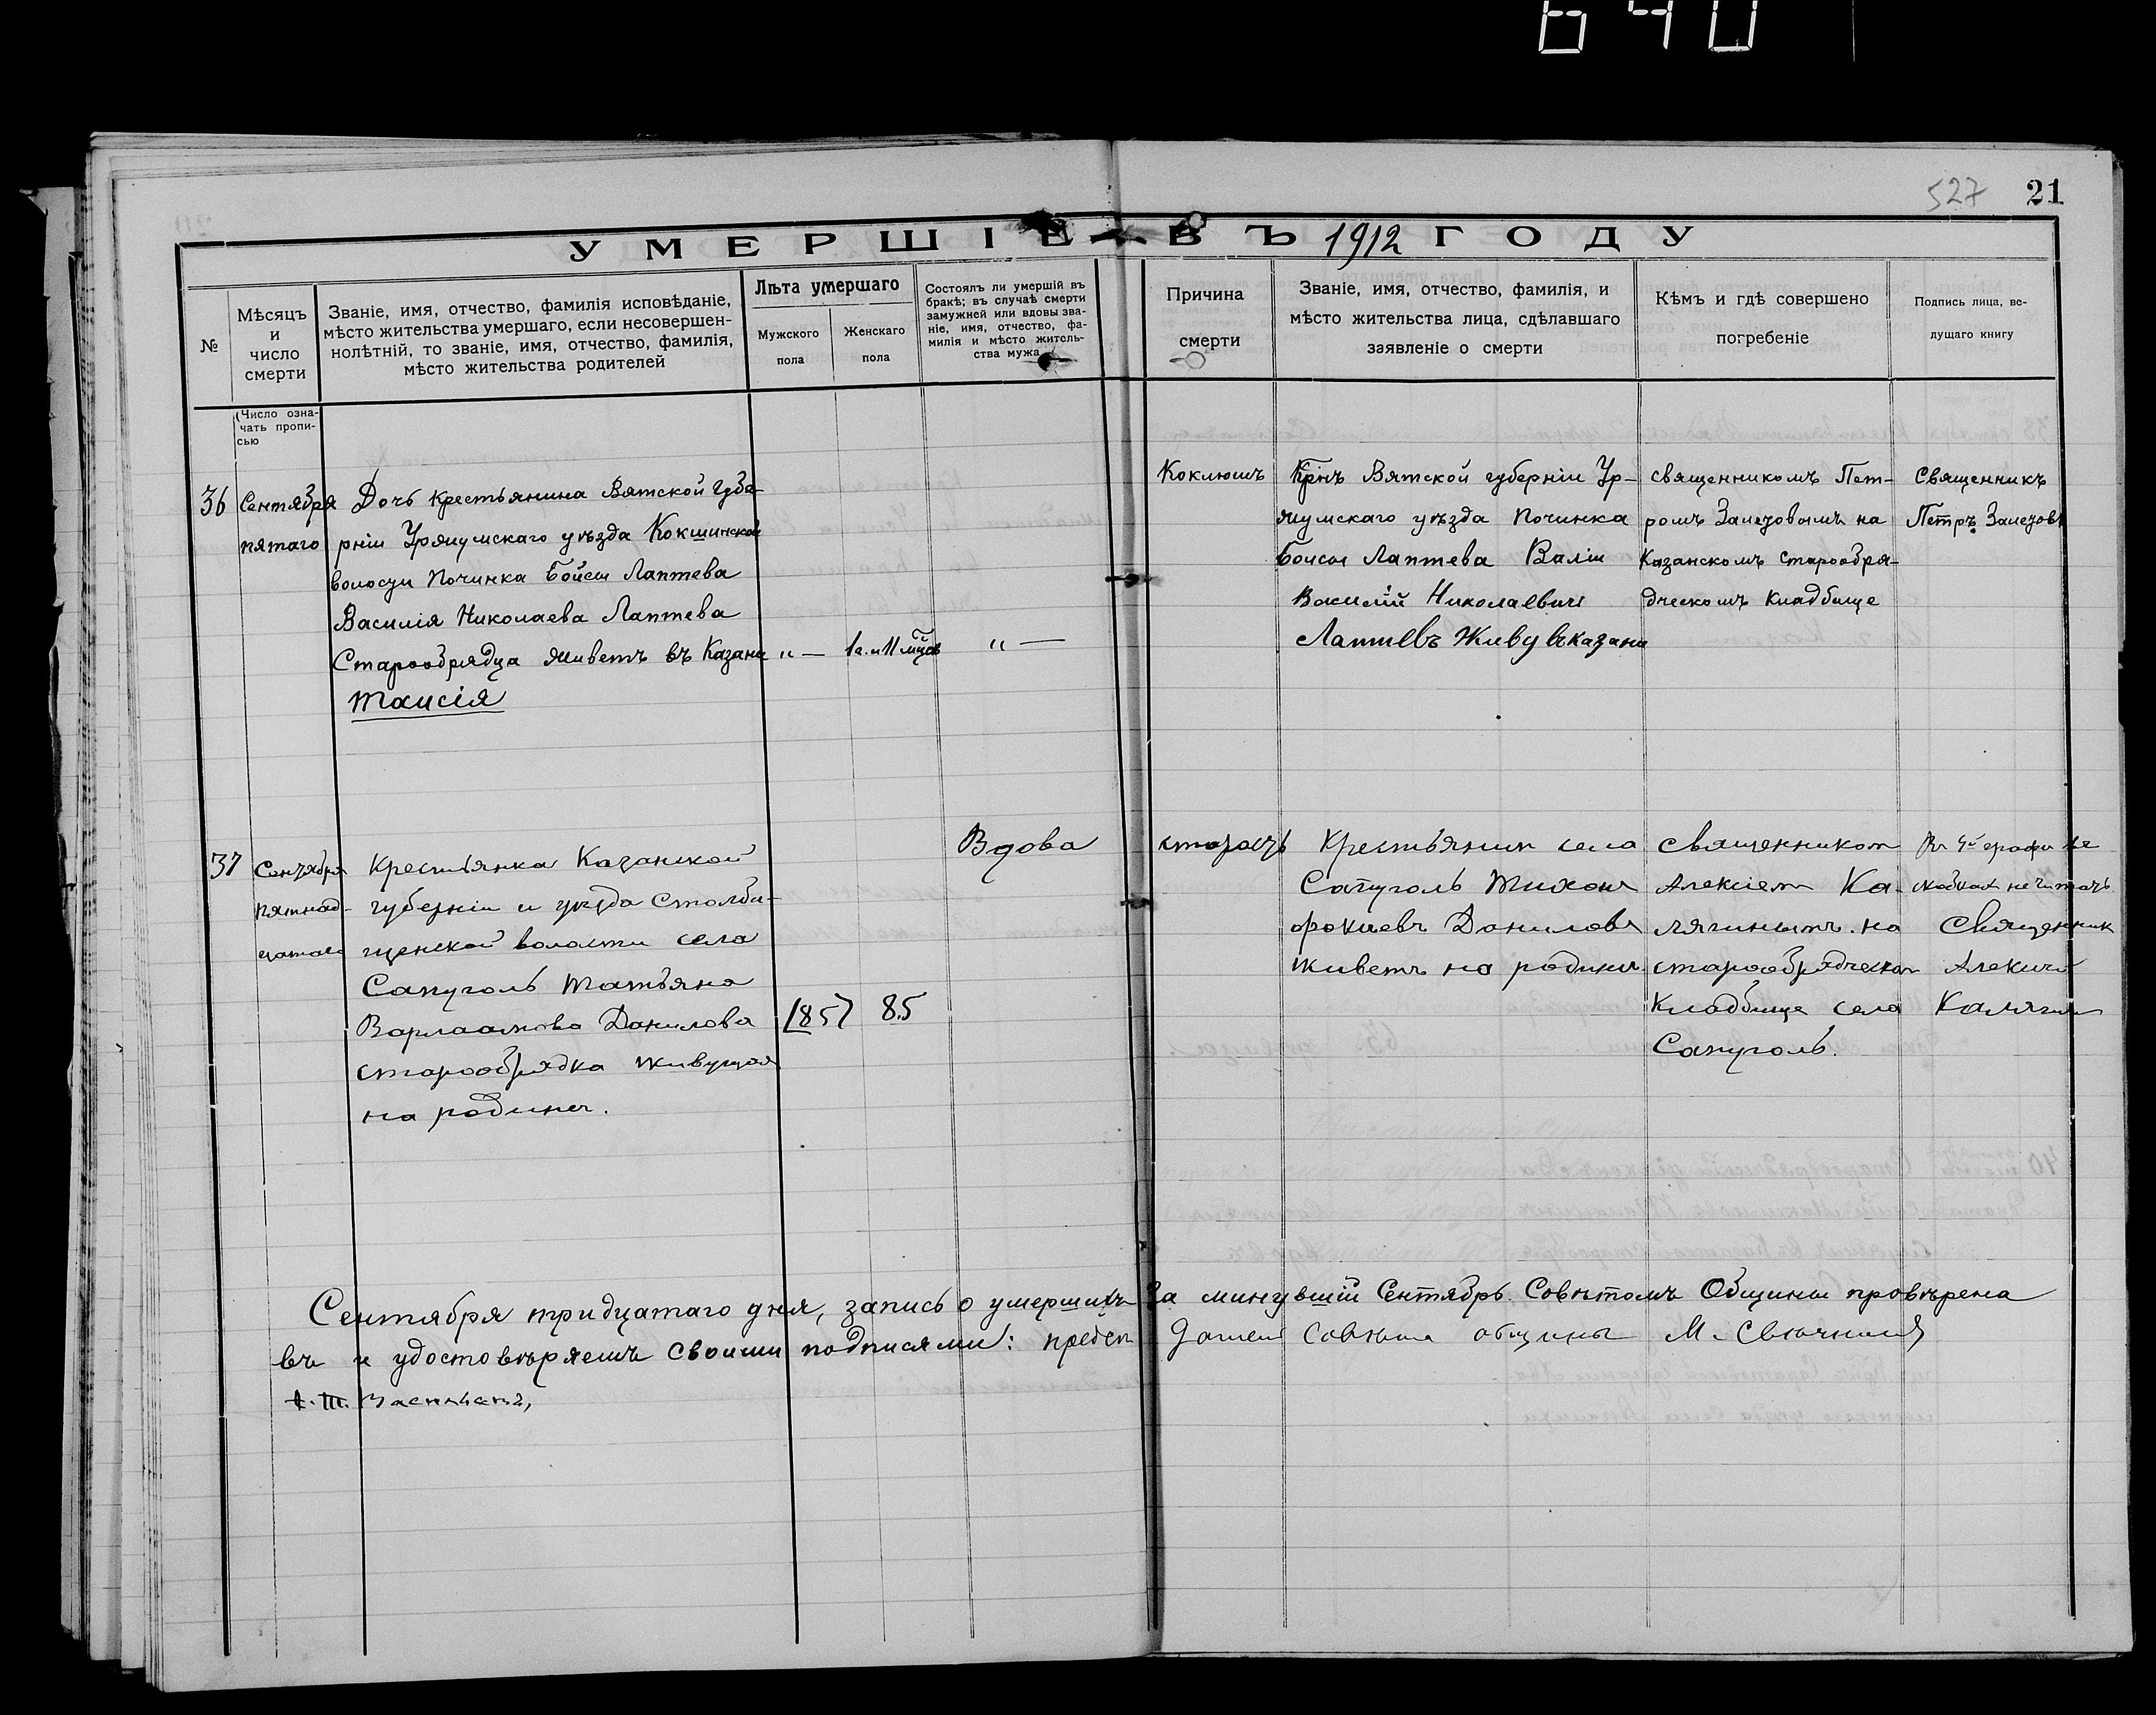 640
527 21
УМЕРШІЕ ВЪ 1912 ГОДУ
№
Мѣсяцъ
и
число
смерти
Званіе, имя, отчество, фамилія исповѣданіе,
мѣсто жительства умершаго, если несовершен-
нолѣтній, то званіе, имя, отчество, фамилія,
мѣсто жительства родителей
Лѣта умершаго
Мужского
пола
Женскаго
пола
Состоялъ ли умершій въ
бракѣ; въ случаѣ смерти
замужней или вдовы зва-
ніе, имя, отчество, фа-
милія и мѣсто житель-
ства мужа
Причина
смерти
Званіе, имя, отчество, фамилія, и
мѣсто жительства лица, сдѣлавшаго
заявленіе о смерти
Кѣмъ и гдѣ совершено
погребеніе
Подпись лица, ве-
дущаго книгу
(Число озна-
чать пропи-
сью
36
Сентября
пятаго
Дочь крестьянина Вятской губе-
рніи Уржумскаго уѣзда Кокшинской
волости Починка Бойсы Лаптева
Василія Николаева Лаптева
Старообрядца живетъ въ Казани
Таисія
" —
1 г. и 11 мцов
" —
Коклюшъ
Крнъ Вятской губерніи Ур-
жумскаго уѣзда Починка
Бойсы Лаптева
Василій Николаевич
Лаптевъ Живу въ казани
священникомъ Пет-
ромъ Залетовымъ на
Казанскомъ старообря-
дческомъ кладбище
Священникъ
Петръ Залетовъ
37
Сентября
пятнад-
цатаго
Крестьянка Казанской
губерніи и уѣзда Столби-
щенской волости села
Сапуголь Татьяна
Варлаамова Данилова
старообрядка живущая
на родине.
(85)
85
Вдова
старость
Крестьянин села
Сапуголь Тихон
Фокиевъ Данилов
живетъ на родине.
священником
Алексием Ка-
лягинымъ на
старообрядческом
Кладбище села
Сапуголь.
в скобках не читать
Священник
Алексий
Калягин
Сентября тридцатаго дня, запись о умершихъ за минувшій Сентябрь Совѣтомъ Общины провѣрена
въ и удостовѣряемъ своими подписями: предсе дател совета общины М.